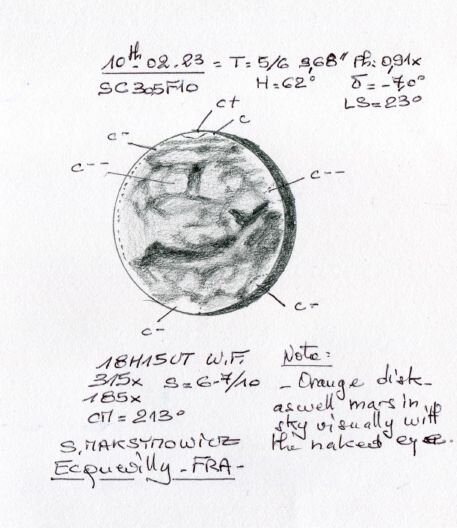 10th 02.23 = T: 5/6 9.68" Ph: 0,91x
SC305F10 H=62° δ=-7.0°
LS=23°
c+
c
c-
c--
c--
c-
c-
18H15UT W.F.
315x S=6-7/10
185x
CM=213°
S.MAKSYMOWICZ
Ecquevilly-FRA-
Note:
- Orange disk
aswell mars in
sky visually with
the naked eye.